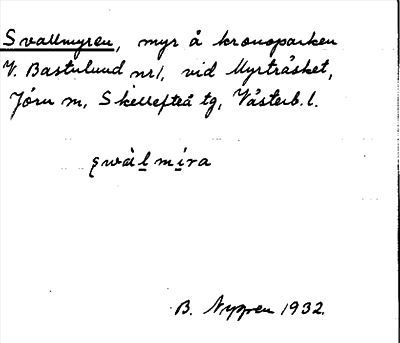 Svallmyren, myr å kronoparken
V. Bastulund nr 1, vid Myrträsket,
Jörn sn, Skellefteå tg, Västerb. l.
swàlmíra
B. Nygren 1932.